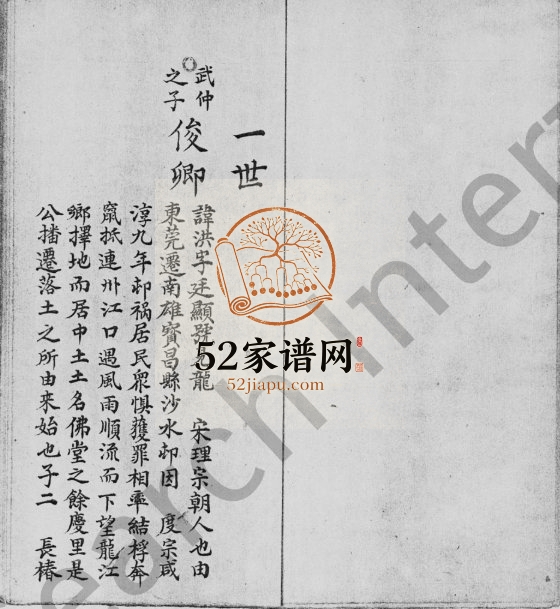 一世
武仲
之子
俊卿
諱洪字廷顯號龍 宋理宗朝人也由
東莞遷南雄寳昌縣沙水邨因 度宗咸
淳九年邨禍居民衆惧獲罪相率結桴奔
竄抵連州江口遇風雨順流而下望龍江
鄉擇地而居中土土名佛堂之餘慶里是
公播遷落土之所由來始也子二 長椿
52家谱网
52jiapu.com
earch Inter